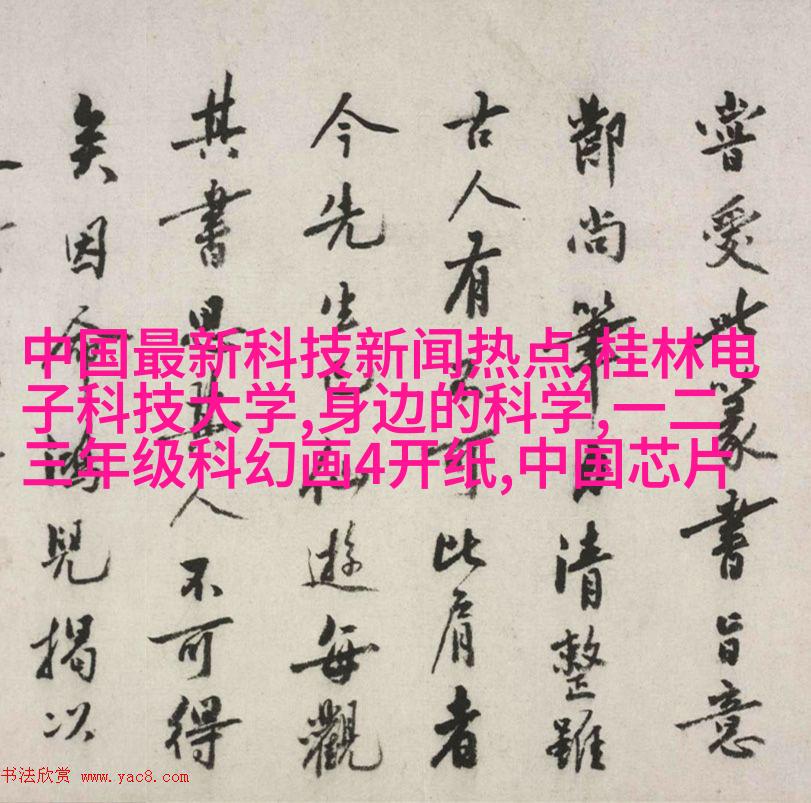 中国最新科技新闻热点,桂林电
子科技大学,身边的科学,一二
三年级科幻画4开纸,中国芯片
嘗愛此篆書旨意
鄭尚筆清整雖
古人有可比肩者
今先生已遊每觀
其書思其人不可得
矣因揭以
书法欣赏 www.yac8.com